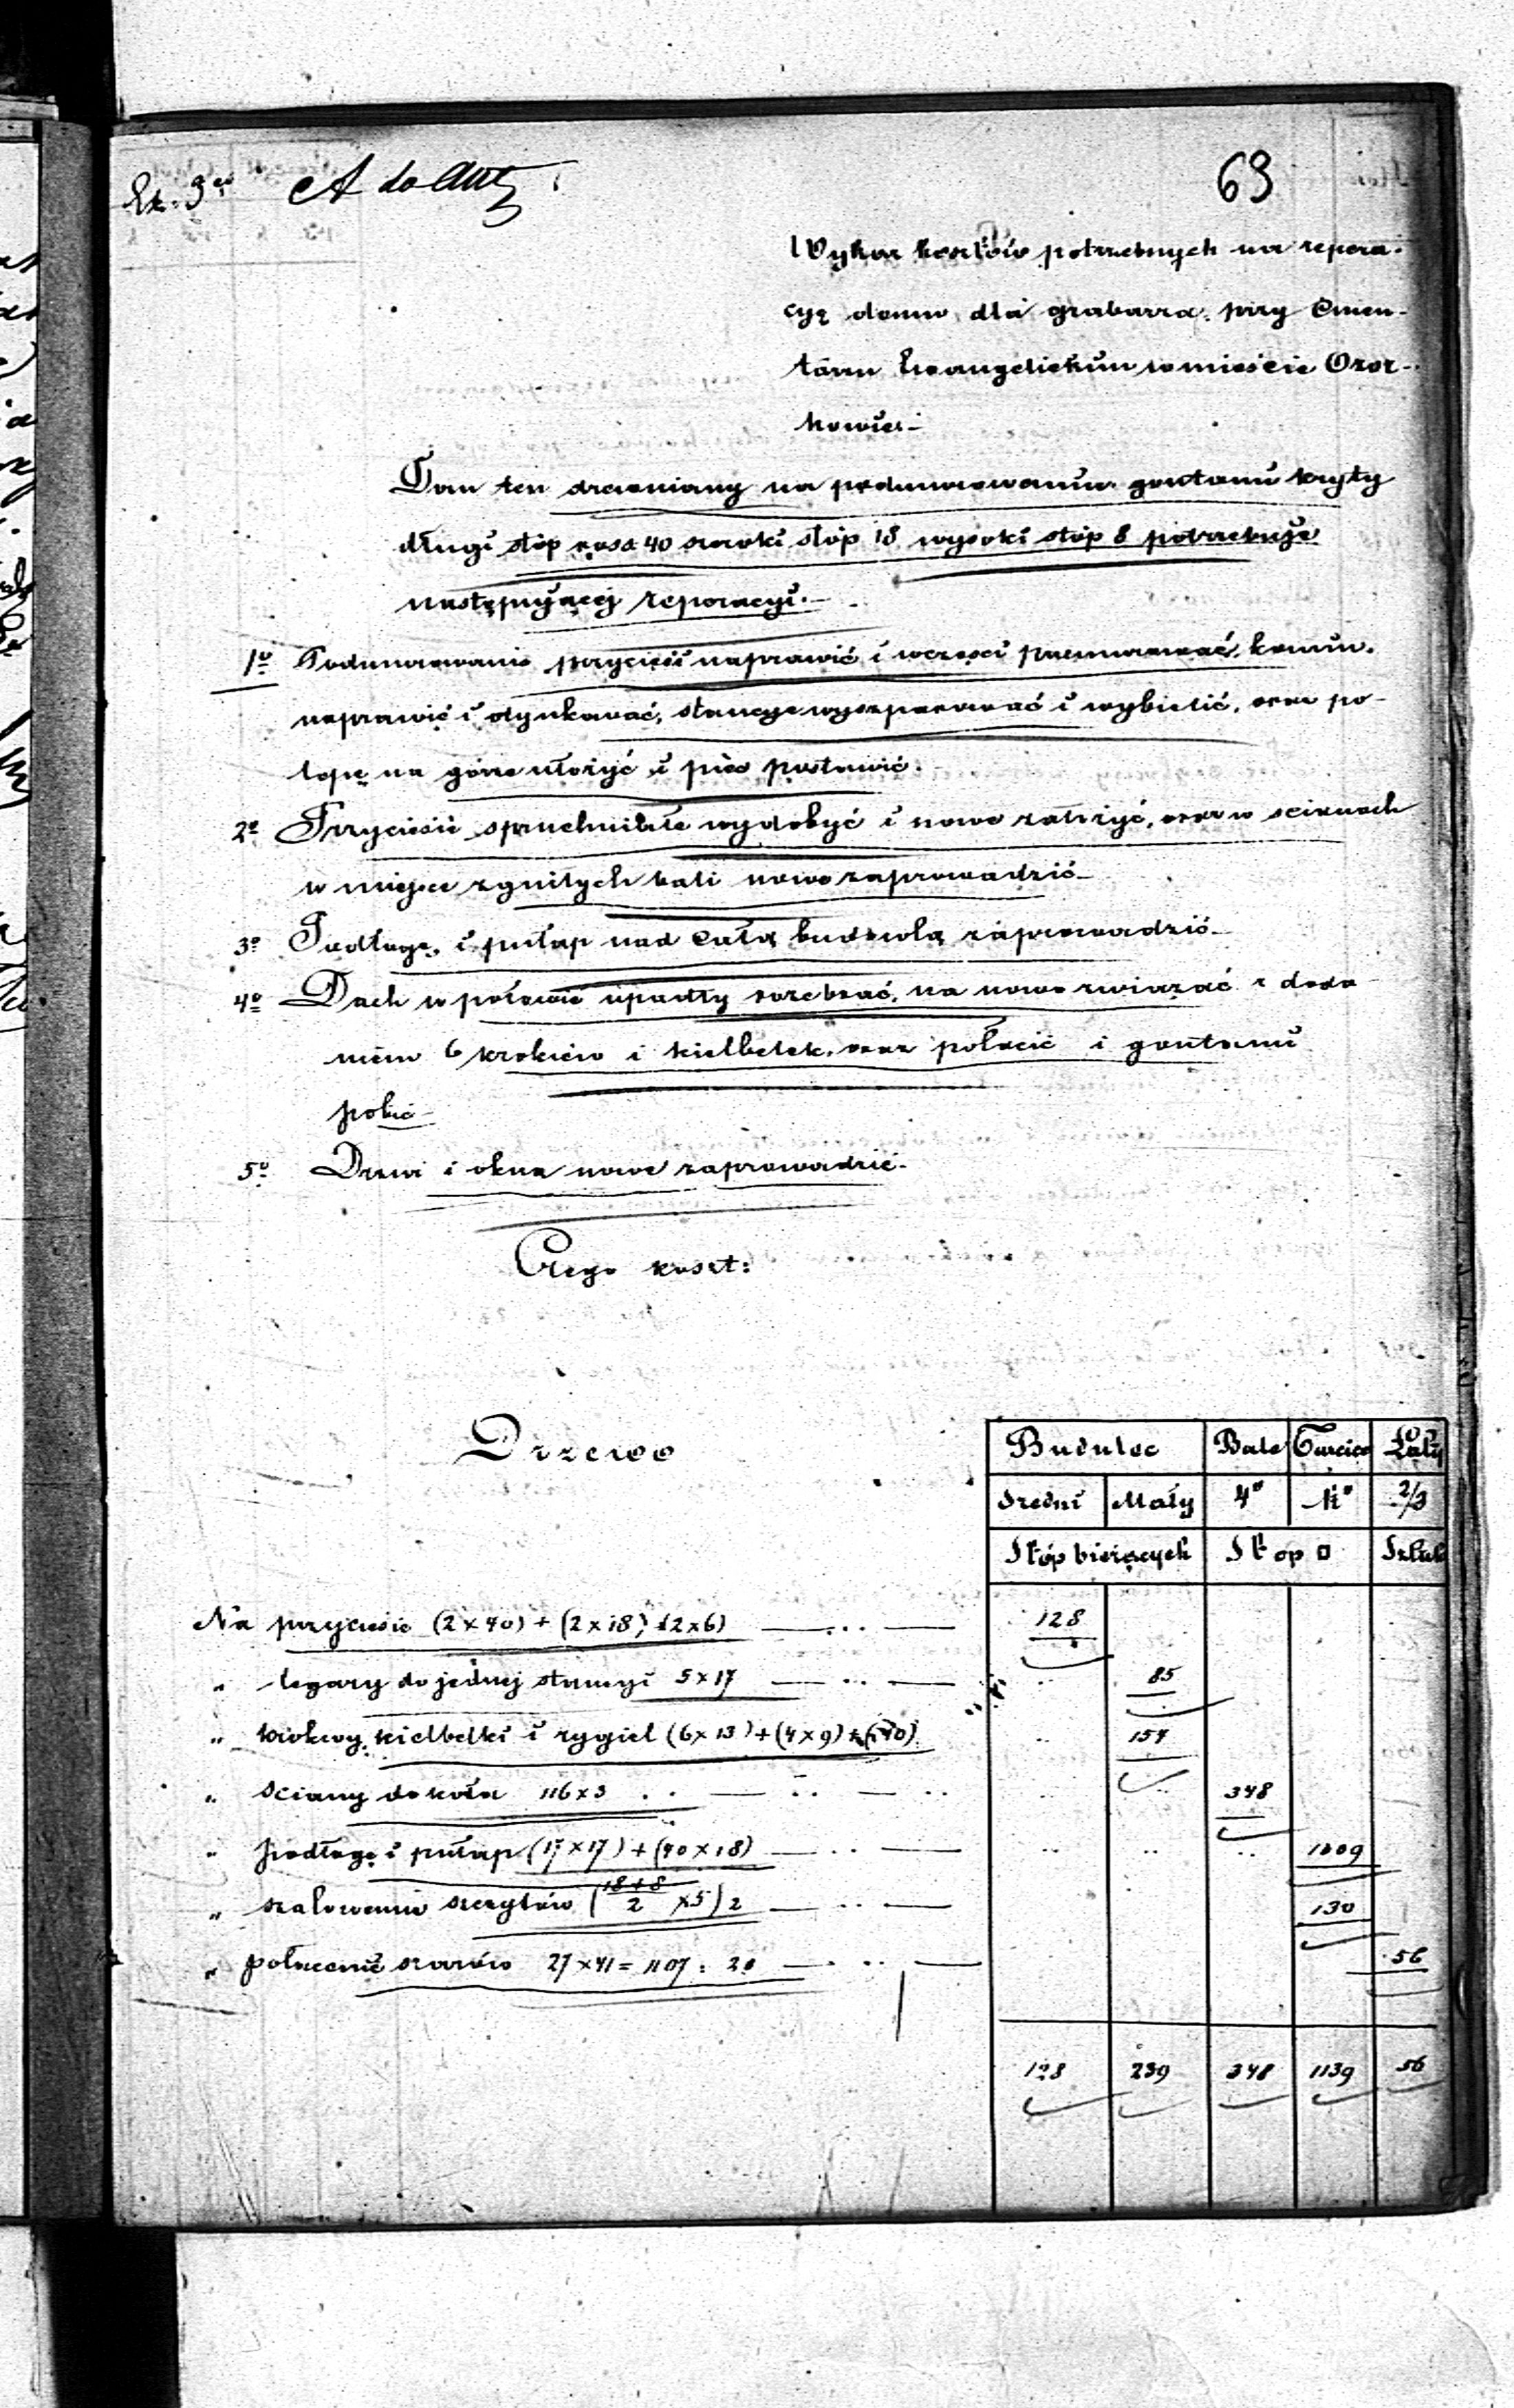 A do Anz
63
Wykaz kosztów potrzebnych na repera-
cyę domu dla grabarza przy Cmen-
tarzu Ewangelickim w mieście Ozor-
kowie.—
Dom ten drewniany na podmurowaniu gontami kryty
długi stóp 40 szeroki stóp 18 wysoki stóp 8 potrzebuje
następującej reperacyi.—
1º Podmurowanie przycieśi naprawić i w części przemurować, komin
naprawić i otynkować, stancye wyszparować i wybielić, oraz po-
lepę na górze ułożyć i piec postawić.
2º Przyciesie spruchniałe wydobyć i nowe założyć, oraz w scianach
w miejsce zgniłych bali nowe zaprowadzić—
3º Podłogę i pułap nad całą budowlą zaprowadzić—
4º Dach w połowie upadły rozebrać, na nowo związać z doda
niem 6 krokiew i kielbelek, oraz połacić i gontami
pobić—
5º Drzwi i okna nowe zaprowadzić.
Czego koszt:
Drzewo
Budulec Bale Tarcice Łaty
Sredni Mały 4" 1½" 2/3
Stóp bieżących Stop □ Sztuk
Na przyciesie (2 x 40) + (2 x 18) + (2 x 6) 128
" legary do jednej stancyi 5 x 17 85
" krokwy, kielbelki i rygiel (6 x 13) + (4 x 9) + (40) 154
" sciany dokoła 116 x 3 348
" podłogę i pułap (17 x 17) + (40 x 18) 1009
" szalowanie szczytów (18+8/2 x 5) 2 130
" połacenie szarów 27 x 41 = 1107 : 20 56
128 239 348 1139 56